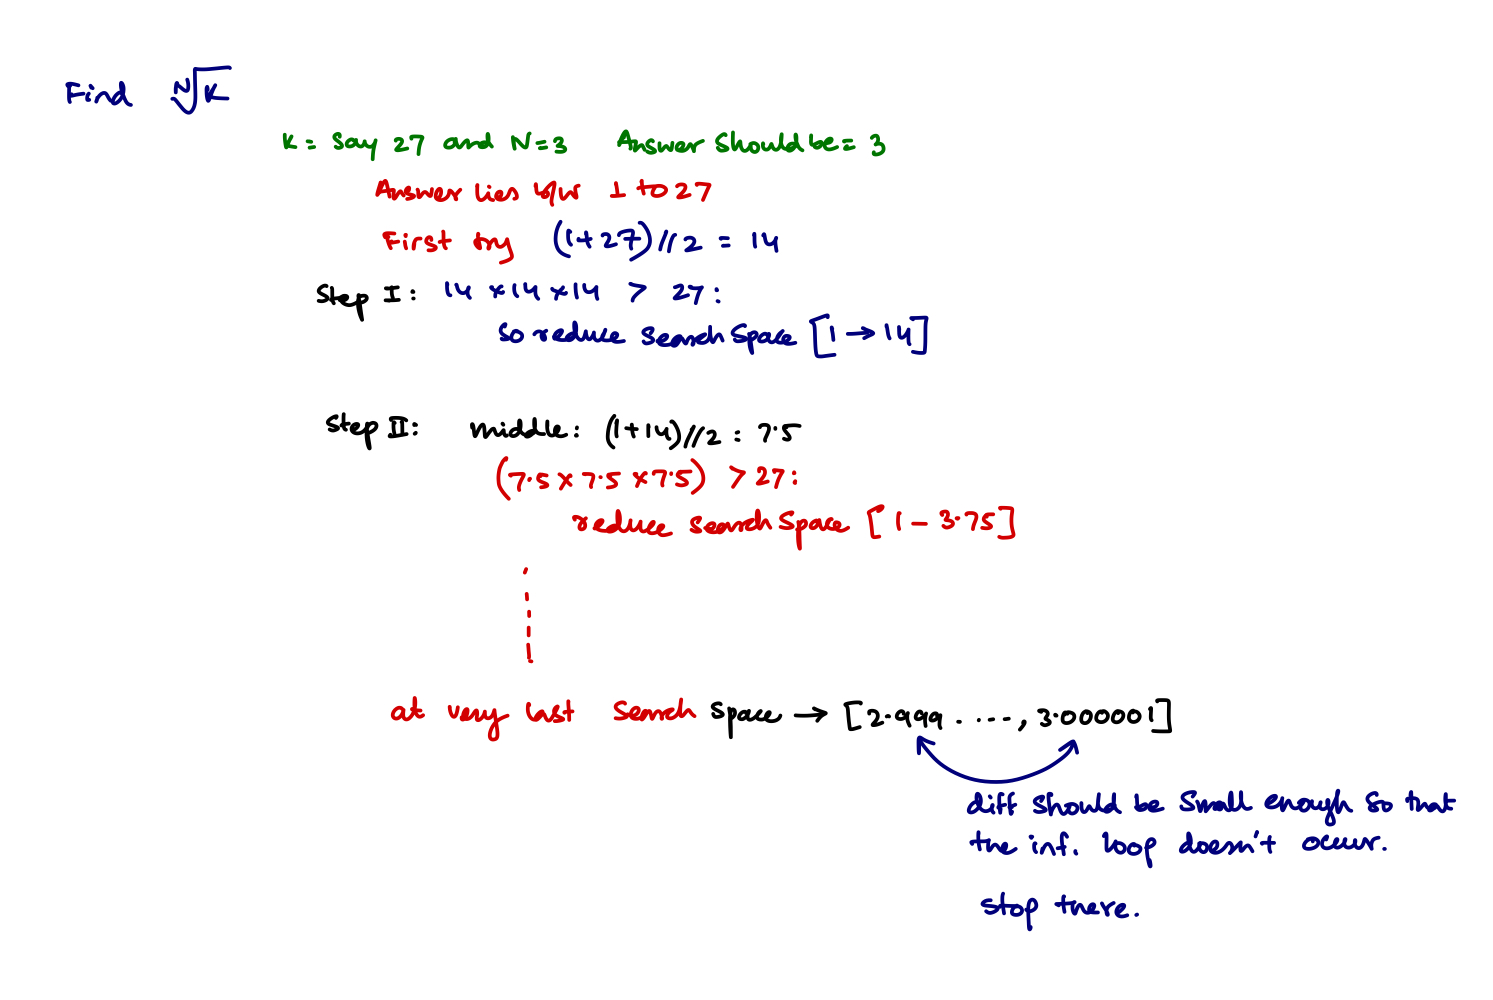 Find ᴺ√K
K = Say 27 and N=3 Answer should be = 3
Answer lies b/w 1 to 27
First try (1+27)//2 = 14
Step I: 14 x 14 x 14 > 27:
so reduce search space [1 → 14]
Step II: middle: (1+14)//2 : 7.5
(7.5 x 7.5 x 7.5) > 27:
reduce search space [1 - 3.75]
at very last search space → [2.999 . ...., 3.000001]
diff should be small enough so that
the inf. loop doesn't occur.
stop there.